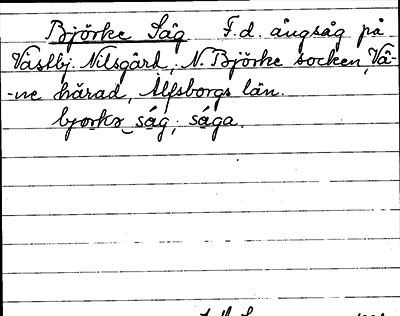 Björke Såg F.d. ångsåg på
Västbj. Nilsgård, N. Björke socken, Vä-
-ne härad, Älfsborgs län.
bjorkə ság; sága.